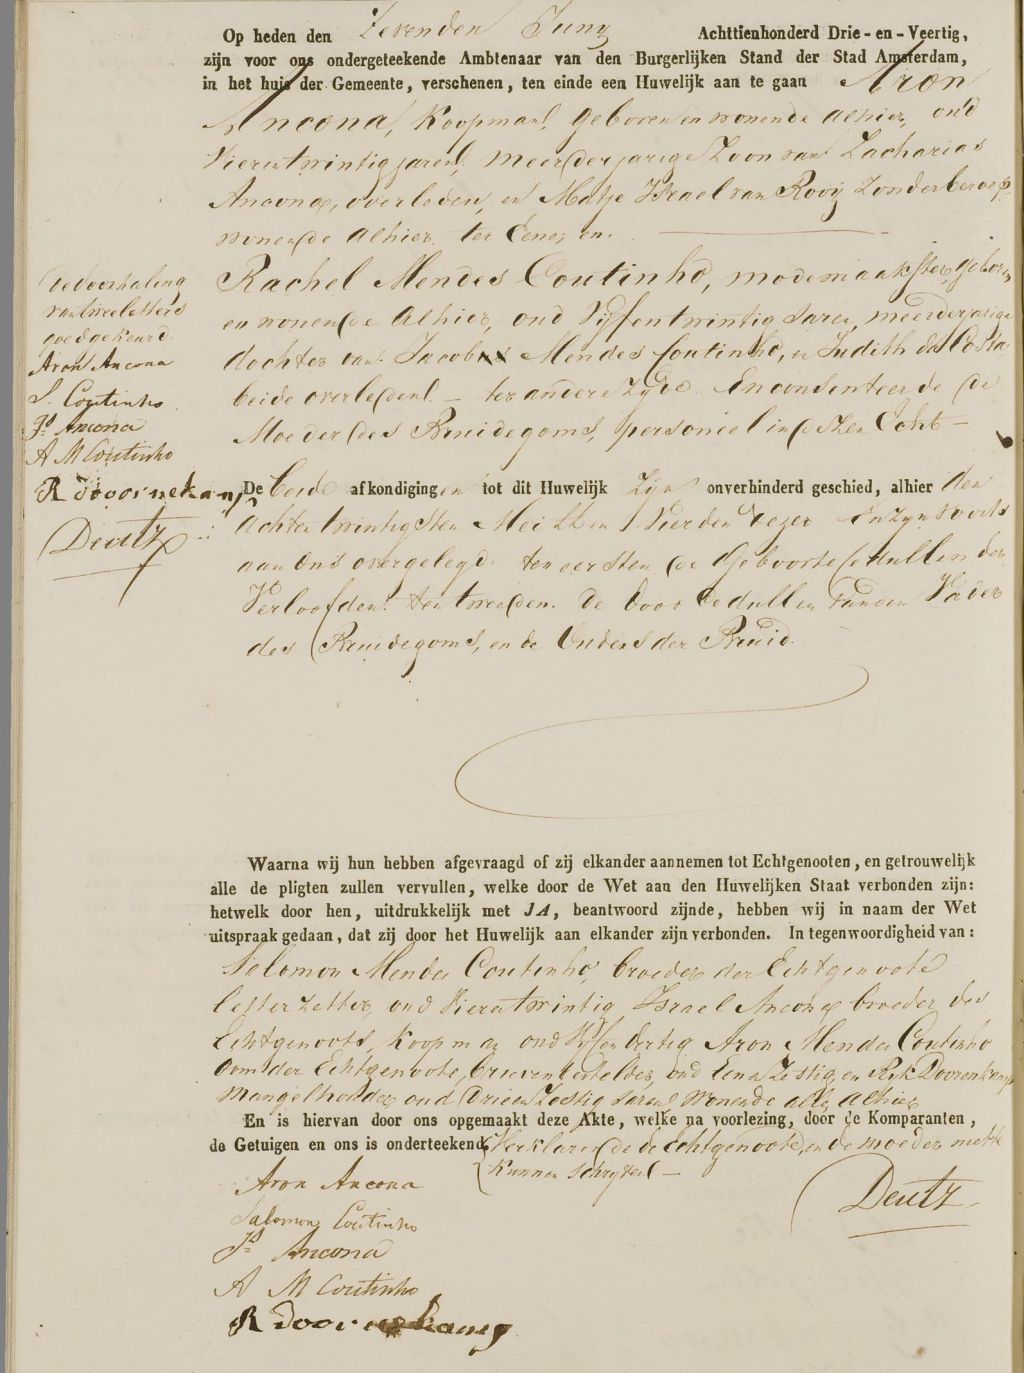 Op heden den Zevenden Juny Achttienhonderd Drie-en-Veertig,
zijn voor ons ondergeteekende Ambtenaar van den Burgerlijken Stand der Stad Amsterdam,
in het huis der Gemeente, verschenen, ten einde een Huwelijk aan te gaan Aron
Ancona, Koopman, geboren en wonende alhier, oud
Vierentwintig jaren, meerderjarige Zoon van Zacharias
Ancona, overleden, en Matje Israel van Rooij Zonder beroep
wonende alhier ter Eene, en.
Rachel Mendes Coutinho, modemaakster, geboren
en wonende alhier, oud Vijfentwintig Jaren, meerderjarige
dochter van Jacob Mendes Coutinho, en Judith da Costa,
beide overleden. – ter andere Zyde. En consenteerde de
Moeder des Bruidegoms, personeel in dezen Echt –
De beide afkondigingen tot dit Huwelijk Zijn onverhinderd geschied, alhier den
achtentwintigsten Mei en Vierden dezer En zyn voorts
aan Ons overgelegd. ten eersten de Geboorte Cedullen der
Verloofden. ten tweeden. De Dood Cedullen van den Vader
des Bruidegoms, en de Ouders der Bruid.
Wedoorhaling
van twee letters
goedgekeurd.
Aron Ancona
S. Coutinho
Js Ancona
A M Coutinho
R doornekamp
Deutz
Waarna wij hun hebben afgevraagd of zij elkander aannemen tot Echtgenooten, en getrouwelijk
alle de pligten zullen vervullen, welke door de Wet aan den Huwelijken Staat verbonden zijn:
hetwelk door hen, uitdrukkelijk met JA, beantwoord zijnde, hebben wij in naam der Wet
uitspraak gedaan, dat zij door het Huwelijk aan elkander zijn verbonden. In tegenwoordigheid van:
Salomon Mendes Coutinho, broeder der Echtgenoote
letterzetter, oud Vierentwintig Israel Ancona broeder des
Echtgenoots, Koopman oud Vijfendertig Aron Mendes Coutinho
Oom der Echtgenoote, brievenbesteller, oud Een en Zestig en Ryk Doorenkamp
Mangelhouder oud Drieen Zestig Jaren Wonende alle alhier
En is hiervan door ons opgemaakt deze Akte, welke na voorlezing, door de Komparanten,
de Getuigen en ons is onderteekend, Verklarende de Echtgenoote, en de moeder niet te
Kunnen Schryven –
Aron Ancona
Salomon Coutinho
Js Ancona
A M Coutinho
R doornekamp
Deutz